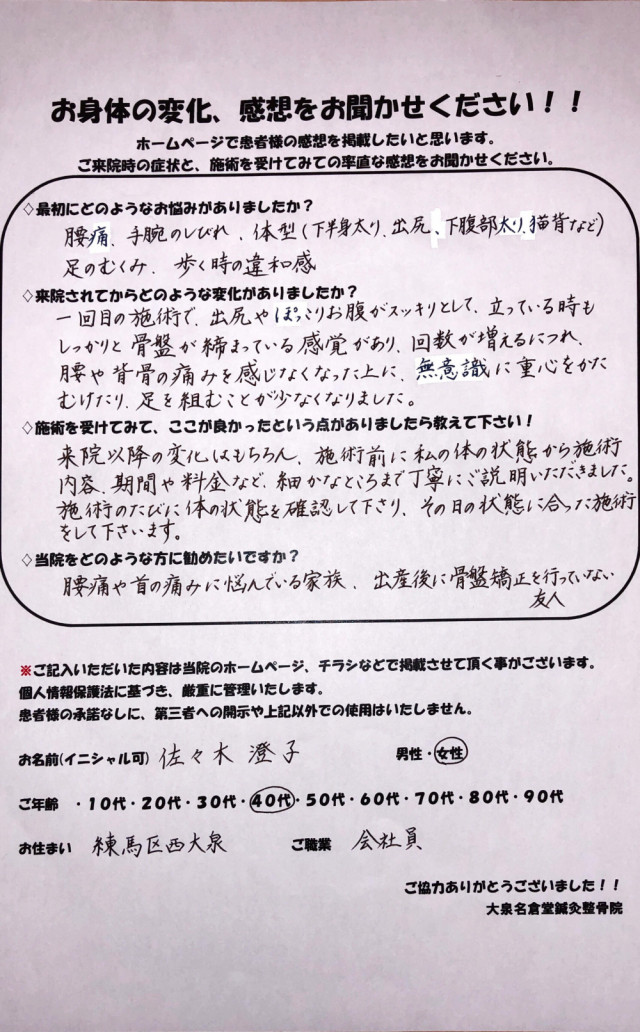 お身体の変化、感想をお聞かせください！！
ホームページで患者様の感想を掲載したいと思います。
ご来院時の症状と、施術を受けてみての率直な感想をお聞かせください。
◇最初にどのようなお悩みがありましたか？
腰痛、手腕のしびれ、体型(下半身太り、出尻、下腹部太り、猫背など)
足のむくみ、歩く時の違和感
◇来院されてからどのような変化がありましたか？
一回目の施術で、出尻やぽっこりお腹がスッキリとして、立っている時も
しっかりと骨盤が締まっている感覚があり、回数が増えるにつれ、
腰や背骨の痛みを感じなくなった上に、無意識に重心をかた
むけたり、足を組むことが少なくなりました。
◇施術を受けてみて、ここが良かったという点がありましたら教えて下さい！
来院以降の変化はもちろん、施術前に私の体の状態から施術
内容、期間や料金など、細かなところまで丁寧にご説明いただきました。
施術のたびに体の状態を確認して下さり、その日の状態に合った施術
をして下さいます。
◇当院をどのような方に勧めたいですか？
腰痛や首の痛みに悩んでいる家族、出産後に骨盤矯正を行っていない
友人
※ご記入いただいた内容は当院のホームページ、チラシなどで掲載させて頂く事がございます。
個人情報保護法に基づき、厳重に管理いたします。
患者様の承諾なしに、第三者への開示や上記以外での使用はいたしません。
お名前(イニシャル可) 佐々木 澄子 男性・女性
ご年齢 ・10代・20代・30代・40代・50代・60代・70代・80代・90代
お住まい 練馬区西大泉 ご職業 会社員
ご協力ありがとうございました！！
大泉名倉堂鍼灸整骨院